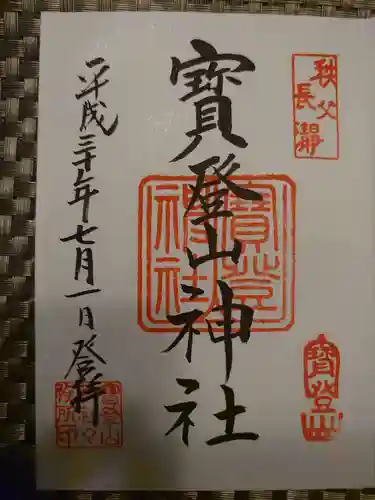 秩父
長瀞
寶登山神社
寶登山
神社
寶登山
平成三十年七月一日登拝